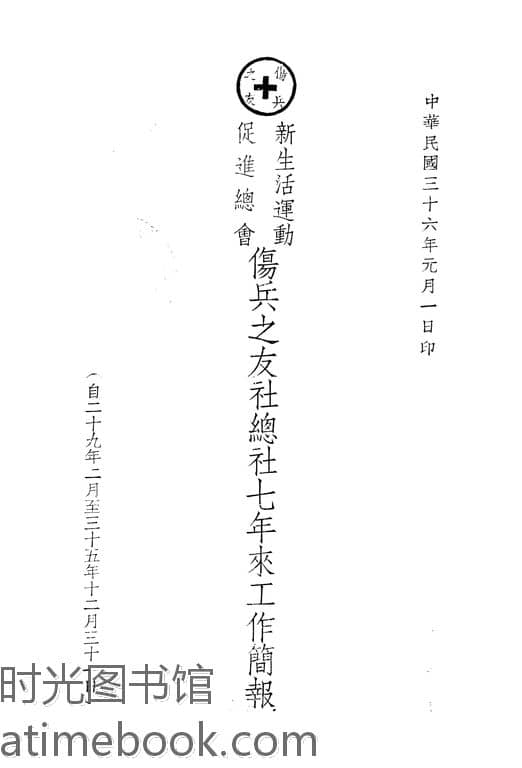 中華民國三十六年元月一日印
傷兵之友
新生活運動
促進總會
傷兵之友社總社七年來工作簡報
（自二十九年二月至三十五年十二月三十一日
时光图书馆
atimebook.com